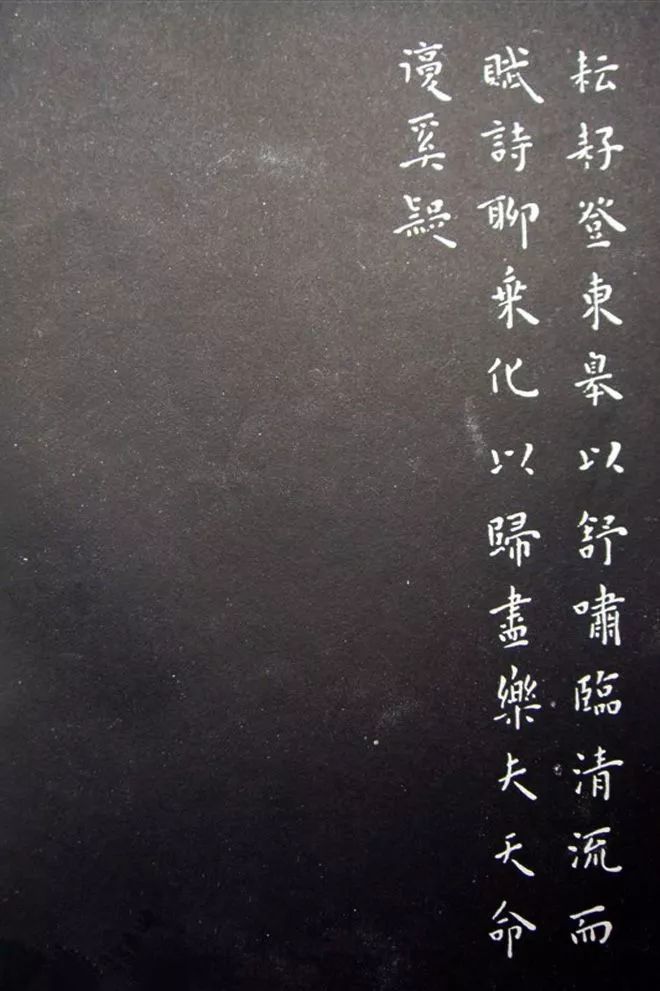 耘耔登東皋以舒嘯臨清流而
賦詩聊乘化以歸盡樂夫天命
復奚疑